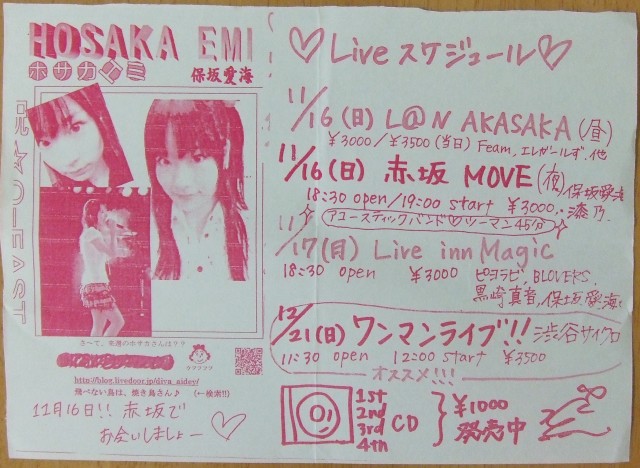 HOSAKA EMI
ホサカエミ 保坂愛海
さ～て、先週のホサカさんは？？
http://blog.livedoor.jp/diva_aidey/
飛べない鳥は、焼き鳥さん♪ (←検索!!)
11月16日!! 赤坂で
お会いしましょー ♡
♡ Live スケジュール ♡
11/16(日) L@N AKASAKA (昼)
¥3000/¥3500(当日) Feam, エレガールズ, 他
11/16(日) 赤坂 MOVE (夜) 保坂愛海
18:30 open/19:00 start ¥3000. 漆乃.
アコースティックバンド♡ツーマン45分
11/17(月) Live inn Magic
18:30 open ¥3000 ピヨラビ, BLOVERS
黒崎真音, 保坂愛海
12/21(日) ワンマンライブ!! 渋谷サイクロ
11:30 open 12:00 start ¥3500
オススメ!!!
1st
2nd
3rd
4th
CD
¥1000
発売中